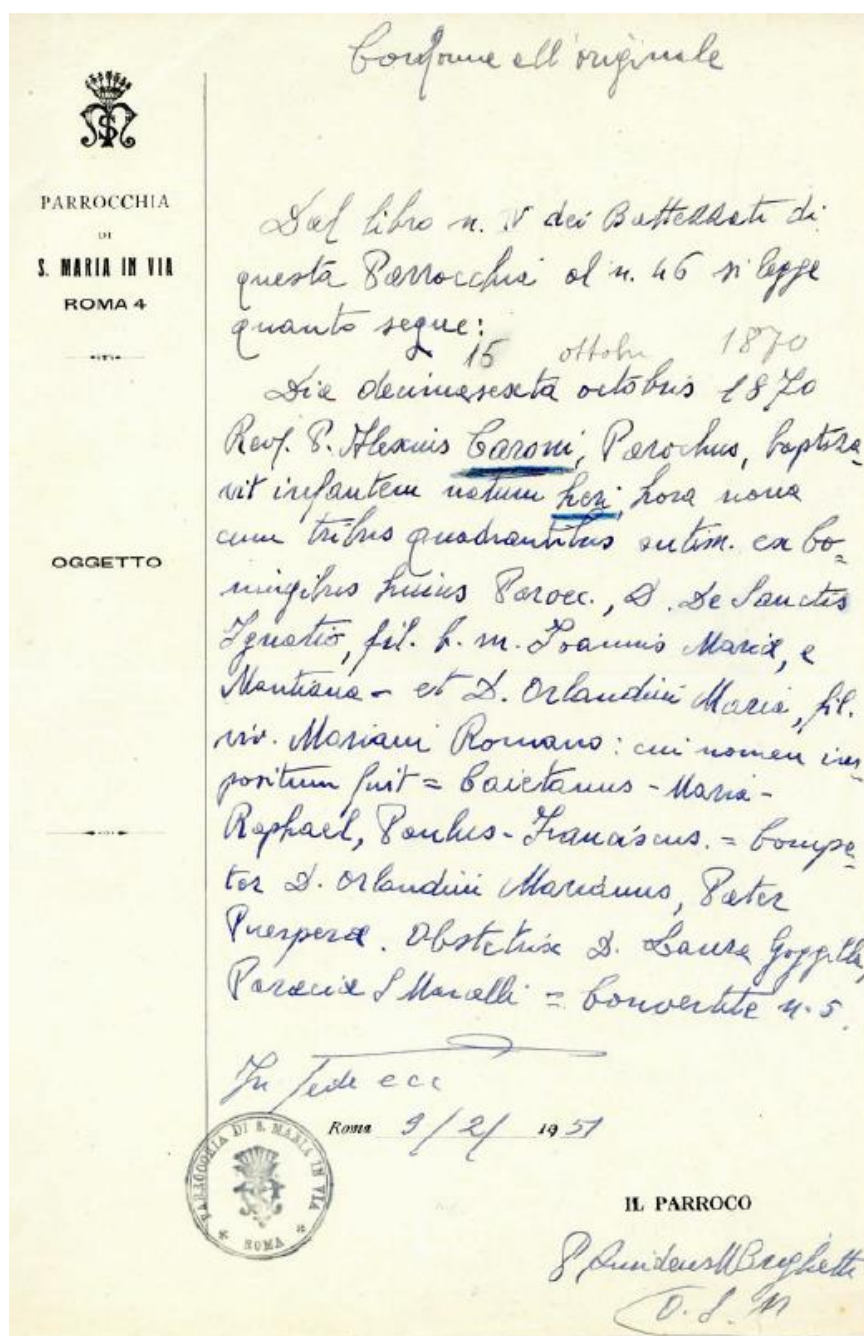 Conforme all'originale
PARROCCHIA
DI
S. MARIA IN VIA
ROMA 4
OGGETTO
Dal libro n. IV dei Battezzati di
questa Parrocchia al n. 46 si legge
quanto segue:
15 ottobre 1870
Die decimasexta octobris 1870
Rev. P. Alexius Caroni, Parochus, baptiza-
vit infantem natum heri, hora nona
cum tribus quadrantibus antim. ex Co=
niugibus huius Paroec., D. De Sanctis
Ignatio, fil. b. m. Joannis Mariæ, e
Mantiana - et D. Orlandini Maria, fil.
viv. Mariani Romano: cui nomen im-
positum fuit = Caietanus - Maria -
Raphael, Paulus - Franciscus. = Compa=
ter D. Orlandini Marianus, Pater
Puerperæ. Obstetrix D. Laura
Paraeciæ S Marcelli = Convertite n. 5.
In fede ecc
Roma 9/2/ 1951
PARROCCHIA DI S. MARIA IN VIA
ROMA
IL PARROCO
O. S. M